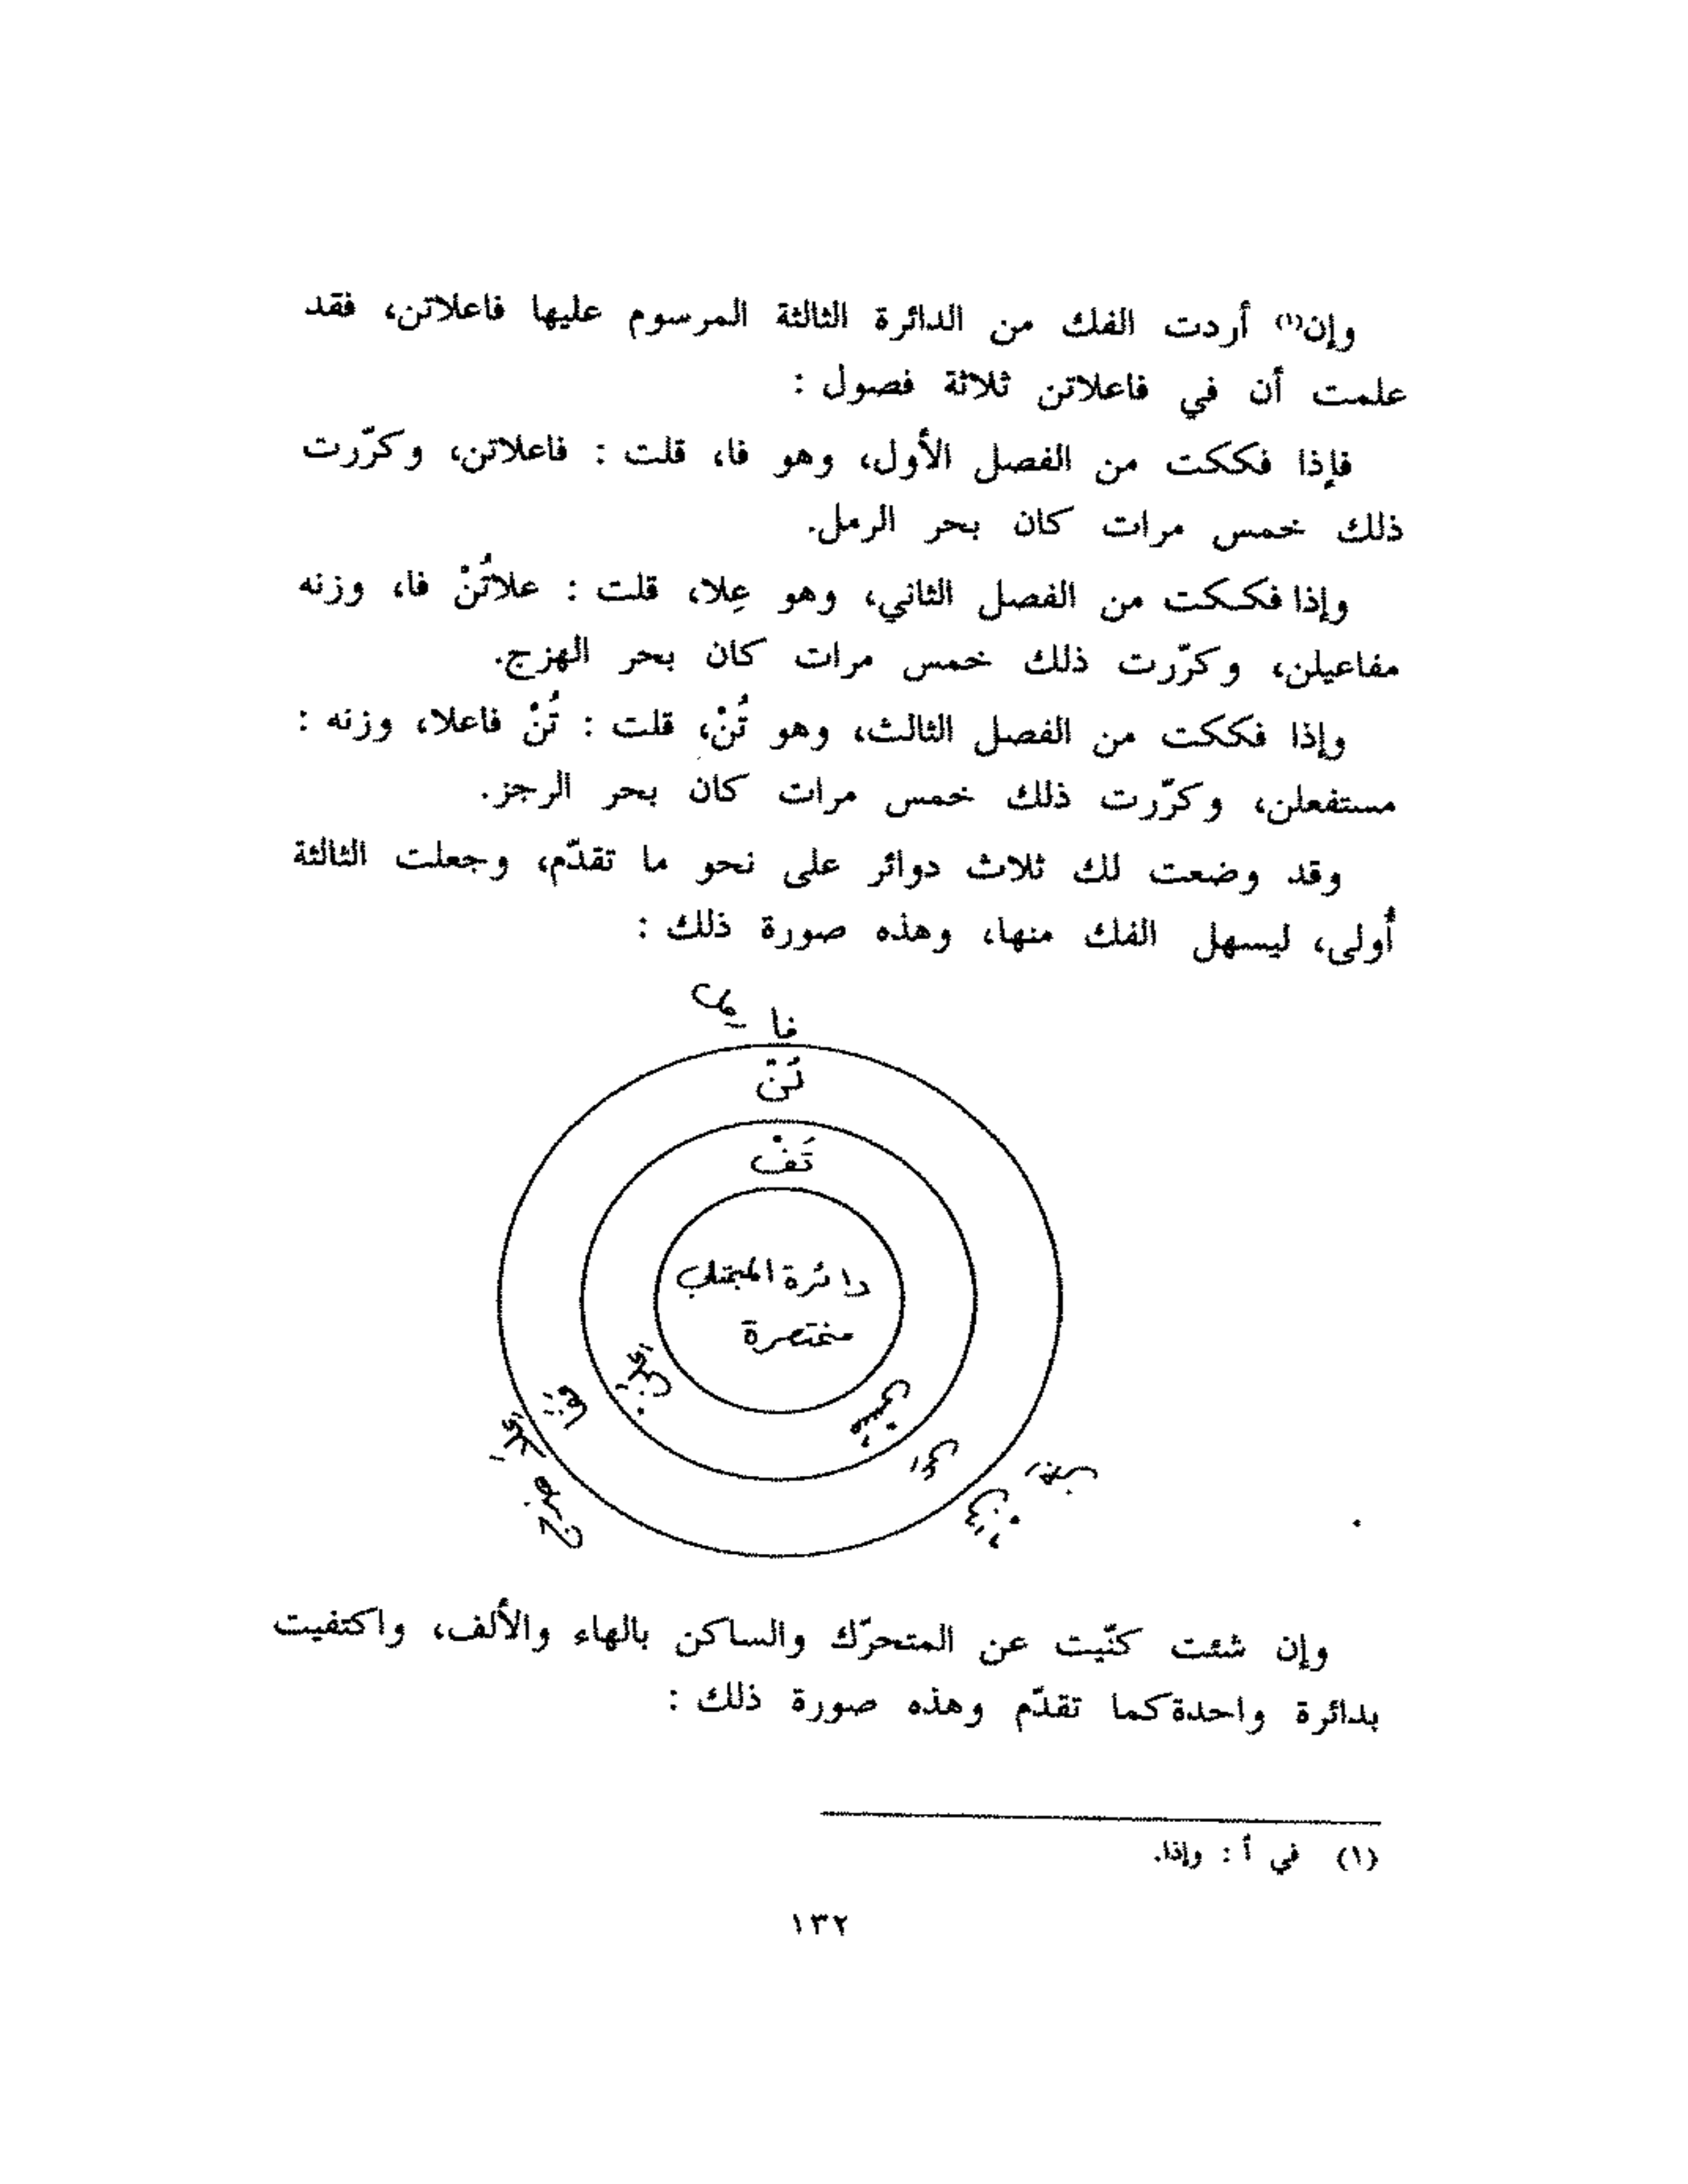 وإن(١) أردت الفك من الدائرة الثالثة المرسوم عليها فاعلاتن، فقد
علمت أن في فاعلاتن ثلاثة فصول :
فإذا فككت من الفصل الأول، وهو فا، قلت : فاعلاتن، وكرّرت
ذلك خمس مرات كان بحر الرمل.
وإذا فككت من الفصل الثاني، وهو عِلا، قلت : علاتُنْ فا، وزنه
مفاعيلن، وكرّرت ذلك خمس مرات كان بحر الهزج.
وإذا فككت من الفصل الثالث، وهو تُنْ، قلت : تُنْ فاعلا، وزنه :
مستفعلن، وكرّرت ذلك خمس مرات كان بحر الرجز.
وقد وضعت لك ثلاث دوائر على نحو ما تقدّم، وجعلت الثالثة
أولى، ليسهل الفك منها، وهذه صورة ذلك :
فا
تُنْ
تَفْ
دائرة المجتلب
مختصرة
وإن شئت كنّيت عن المتحرّك والساكن بالهاء والألف، واكتفيت
بدائرة واحدة كما تقدّم وهذه صورة ذلك :
(١) في أ : وإذا.
١٣٢